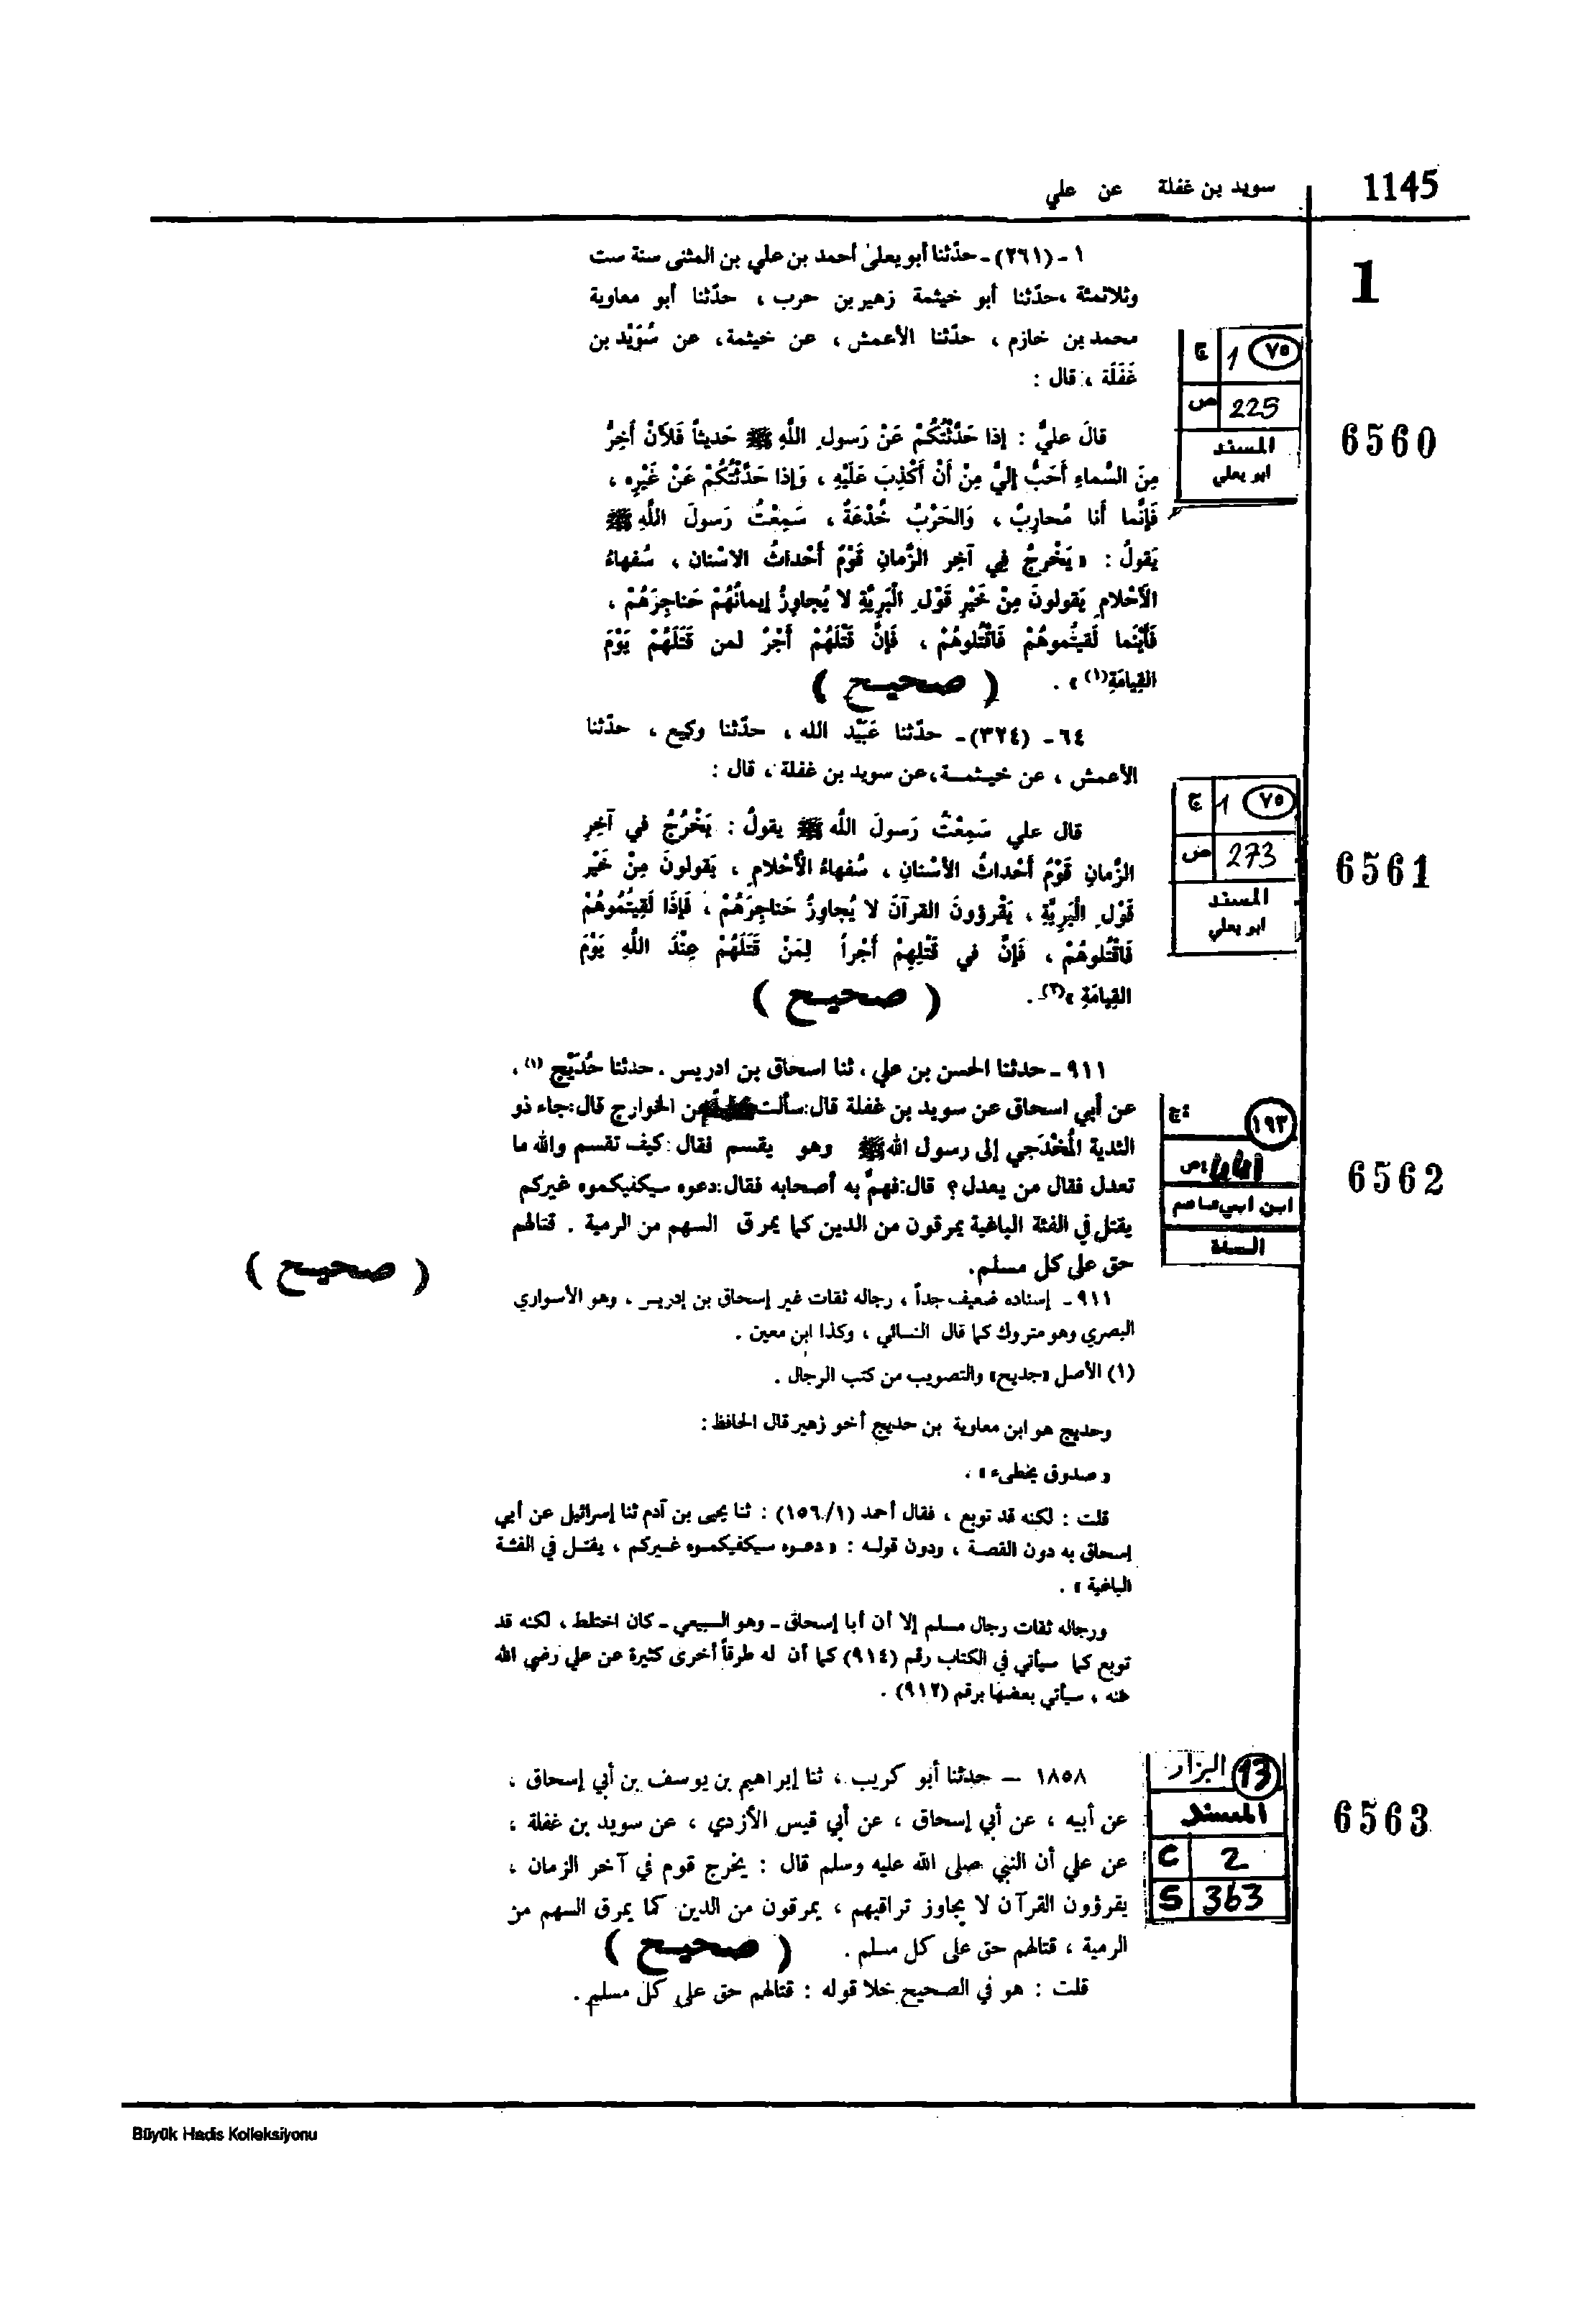 1145
سويد بن غفلة عن علي
1
١ - (٢٦١) - حدّثنا أبو يعلىٰ أحمد بن علي بن المثنى سنة ست
وثلاثمئة ، حدّثنا أبو خيثمة زهير بن حرب ، حدّثنا أبو معاوية
محمد بن خازم ، حدّثنا الأعمش ، عن خيثمة، عن سُوَيْد بن
غَفَلَة ، قال :
ج 1 ٧٥
ص 225
المسند
ابو يعلي
6560
قالَ عليٌّ : إذا حَدَّثْتُكُمْ عَنْ رَسولِ اللَّهِ ﷺ حَديثاً فَلَأنْ أَخِرَّ
مِنَ السَّماءِ أَحَبُّ إليَّ مِنْ أَنْ أَكْذِبَ عَلَيْهِ ، وَإذا حَدَّثْتُكُمْ عَنْ غَيْرِهِ ،
فَإنَّما أَنا مُحارِبٌ ، وَالحَرْبُ خُدْعَةٌ ، سَمِعْتُ رَسولَ اللَّهِ ﷺ
يَقولُ : « يَخْرجُ فِي آخِر الزَّمانِ قَوْمٌ أَحْداثُ الاسْنان ، سُفهاءُ
الأَحْلامِ يَقولونَ مِنْ خَيْرِ قَوْلِ الْبَرِيَّةِ لا يُجاوِزُ إيمانُهُمْ حَناجِرَهُمْ ،
فَأَيْنَما لَقيتُموهُمْ فَاقْتُلوهُمْ ، فَإنَّ قَتْلَهُمْ أَجْرٌ لمن قَتَلَهُمْ يَوْمَ
القِيامَةِ(١) » . ( صحيح )
٦٤ - (٣٢٤) - حدّثنا عَبَيْد الله ، حدّثنا وكيع ، حدّثنا
الأعمش ، عن خيثمة، عن سويد بن غفلة ، قال :
ج 1 ٧٥
ص 273
المسند
ابو يعلي
6561
قال علي سَمِعْتُ رَسولَ اللَّه ﷺ يقولُ : يَخْرُجُ في آخِرِ
الزَّمانِ قَوْمٌ أَحْداثُ الأسْنانِ ، سُفهاءُ الأَحْلامِ ، يَقولونَ مِنْ خَيْر
قَوْلِ الْبَرِيَّةِ ، يَقْرؤونَ القرآنَ لا يُجاوِزُ حَناجِرَهُمْ ، فَإذَا لَقِيتُمُوهُمْ
فَاقْتُلوهُمْ ، فَإنَّ في قَتْلِهِمْ أَجْراً لِمَنْ قَتَلَهُمْ عِنْدَ اللَّهِ يَوْمَ
القِيامَةِ »(٢) . ( صحيح )
٩١١ - حدثنا الحسن بن علي ، ثنا اسحاق بن ادريس . حدثنا حُدَيْج (١) ،
عن أبي اسحاق عن سويد بن غفلة قال: سألت عن الخوارج قال: جاء ذو
الثدية المُخْدَجي إلى رسول الله ﷺ وهو يقسم فقال : كيف تقسم والله ما
تعدل فقال من يعدل؟ قال: فهمّ به أصحابه فقال: دعوه سيكفيكموه غيركم
يقتل في الفئة الباغية يمرقون من الدين كما يمرق السهم من الرمية . قتالهم
حق على كل مسلم.
( صحيح )
ج: ١٩٣
ص:
ابن ابي عاصم
السنة
6562
٩١١ - إسناده ضعيف جداً ، رجاله ثقات غير إسحاق بن إدريس ، وهو الأسواري
البصري وهو متروك كما قال النسائي ، وكذا ابن معين .
(١) الأصل «جديح» والتصويب من كتب الرجال .
وحديج هو ابن معاوية بن حديج أخو زهير قال الحافظ :
« صدوق يخطىء » .
قلت : لكنه قد توبع ، فقال أحمد (١/١٥٦) : ثنا يحيى بن آدم ثنا إسرائيل عن أبي
إسحاق به دون القصة ، ودون قوله : « دعوه سيكفيكموه غيركم ، يقتل في الفئة
الباغية » .
ورجاله ثقات رجال مسلم إلا أن أبا إسحاق - وهو السبيعي - كان اختلط ، لكنه قد
توبع كما سيأتي في الكتاب رقم (٩١٤) كما أن له طرقاً أخرى كثيرة عن علي رضي الله
عنه ، سيأتي بعضها برقم (٩١٢) .
13 البزار
المسند
C 2
S 363
6563
١٨٥٨ – حدثنا أبو كريب ، ثنا إبراهيم بن يوسف بن أبي إسحاق ،
عن أبيه ، عن أبي إسحاق ، عن أبي قيس الأزدي ، عن سويد بن غفلة ،
عن علي أن النبي صلى الله عليه وسلم قال : يخرج قوم في آخر الزمان ،
يقرؤون القرآن لا يجاوز تراقيهم ، يمرقون من الدين كما يمرق السهم من
الرمية ، قتالهم حق على كل مسلم . ( صحيح )
قلت : هو في الصحيح خلا قوله : قتالهم حق على كل مسلم .
Büyük Hadis Kolleksiyonu